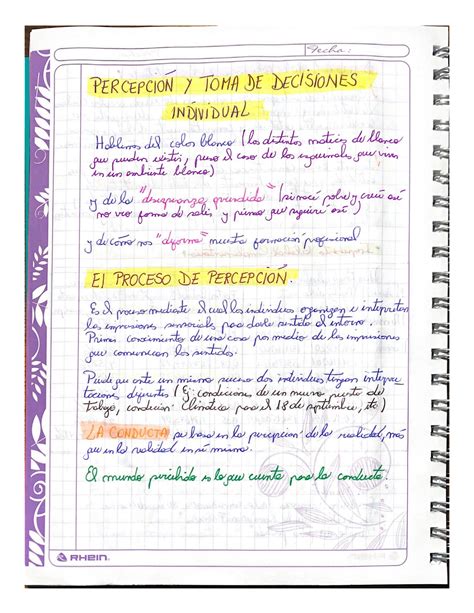 Fecha:
PERCEPCIÓN Y TOMA DE DECISIONES
INDIVIDUAL
Hablamos del color blanco (los distintos matices de blanco
que pueden existir, pero el caso de los esquimales, que viven
en un ambiente blanco)
y de la "desesperanza aprendida" (si nací pobre y crecí así
no veo forma de salir, y pienso que seguiré así)
y de cómo nos "deforma" nuestra formación profesional
El PROCESO DE PERCEPCIÓN.
Es el proceso mediante el cual los individuos organizan e interpretan
las impresiones sensoriales para darle sentido al entorno.
Primer conocimiento de una cosa por medio de las impresiones
que comunican los sentidos.
Puede que ante un mismo suceso dos individuos tengan interpre
taciones diferentes (Ej: condiciones de un nuevo puesto de
trabajo, condición climática para el 18 de septiembre, etc)
LA CONDUCTA se basa en la percepción de la realidad, más
que en la realidad en sí misma.
El mundo percibido es lo que cuenta para la conducta.
RHEIN